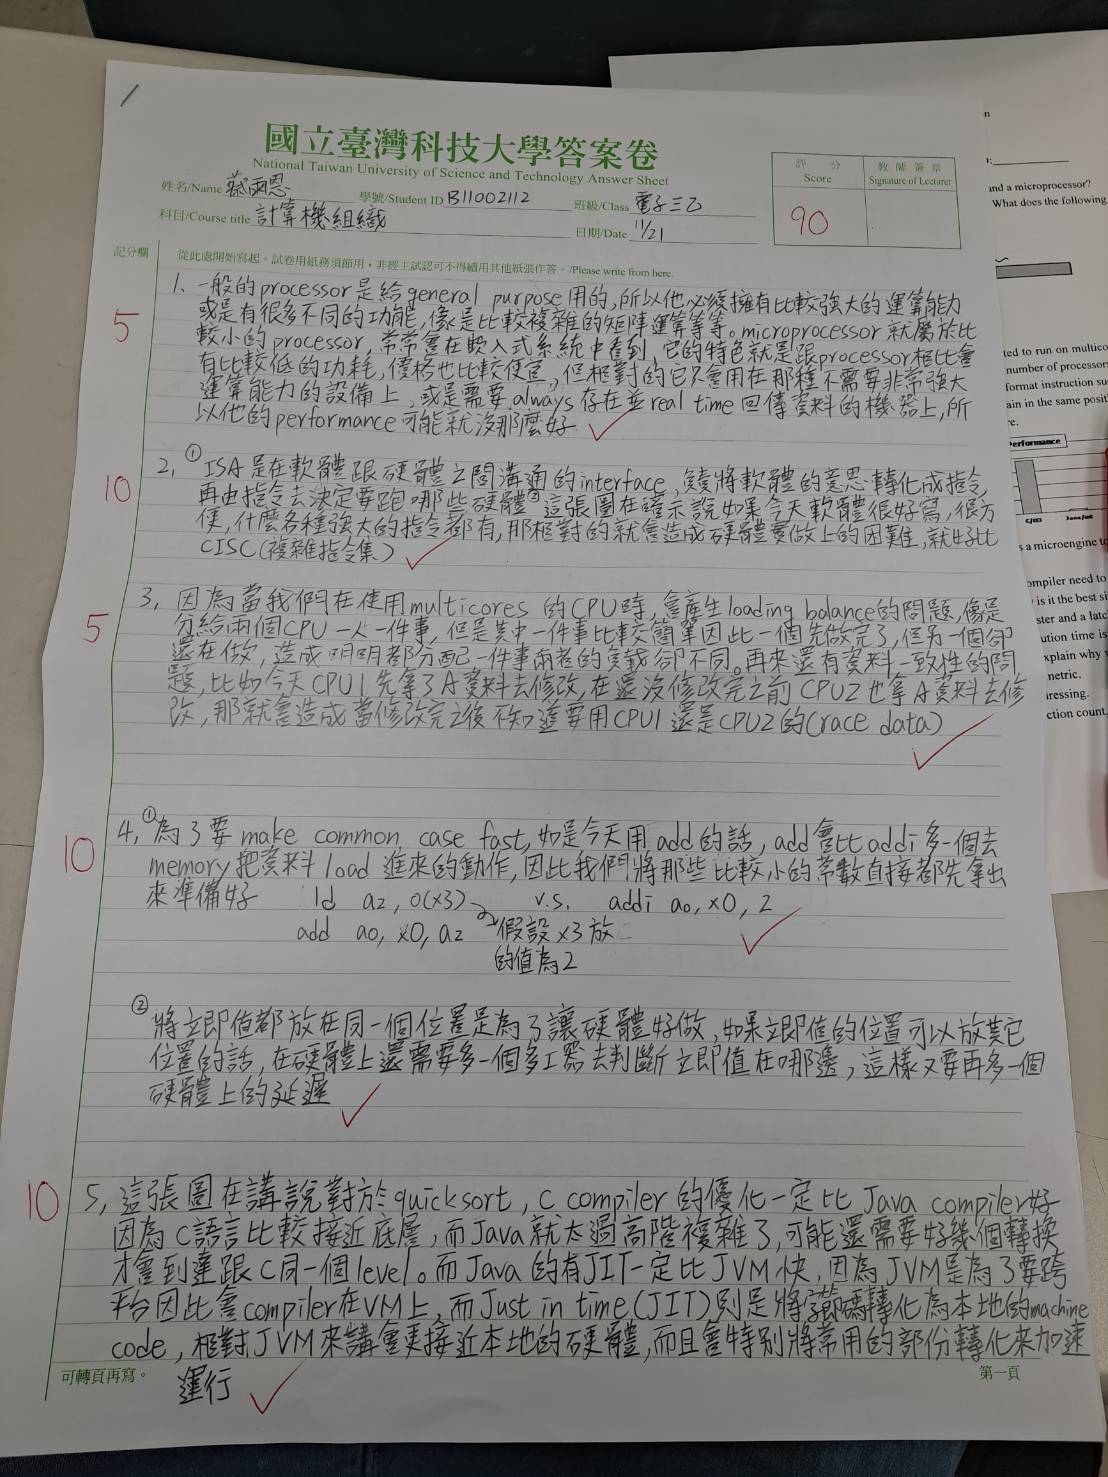 國立臺灣科技大學答案卷
National Taiwan University of Science and Technology Answer Sheet
姓名/Name 蔡雨恩 學號/Student ID B11002112 班級/Class 電子三乙
科目/Course title 計算機組織 日期/Date 11/21
評分 Score 教師簽章 Signature of Lecturer
90
記分欄 從此處開始寫起。試卷用紙務須節用,非經主試認可不得續用其他紙張作答。/Please write from here.
1. 一般的processor是給general purpose用的,所以他必須擁有比較強大的運算能力
5 或是有很多不同的功能,像是比較複雜的矩陣運算等等。microprocessor就屬於比
較小的processor,常常會在嵌入式系統中看到,它的特色就是跟processor相比會
有比較低的功耗,價格也比較便宜,但相對的它只會用在那種不需要非常強大
運算能力的設備上,或是需要always存在並real time回傳資料的機器上,所
以他的performance可能就沒那麼好
2. ①ISA是在軟體跟硬體之間溝通的interface,會將軟體的意思轉化成指令,
10 再由指令去決定要跑哪些硬體②這張圖在暗示說如果今天軟體很好寫,很方
便,什麼各種強大的指令都有,那相對的就會造成硬體實做上的困難,就好比
CISC(複雜指令集)
3. 因為當我們在使用multicores的CPU時,會產生loading balance的問題,像是
5 分給兩個CPU一人一件事,但是其中一件事比較簡單因此一個先做完了,但另一個卻
還在做,造成明明都分配一件事兩者的負載卻不同。再來還有資料一致性的問
題,比如今天CPU1先拿了A資料去修改,在還沒修改完之前CPU2也拿A資料去修
改,那就會造成當修改完之後不知道要用CPU1還是CPU2的(race data)
4. ①為了要make common case fast,如是今天用add的話,add會比addi多一個去
10 memory把資料load進來的動作,因此我們將那些比較小的常數直接都先拿出
來準備好 ld a2, 0(x3) v.s. addi a0, x0, 2
add a0, x0, a2 假設x3放
的值為2
②將立即值都放在同一個位置是為了讓硬體好做,如果立即值的位置可以放其它
位置的話,在硬體上還需要多一個多工器去判斷立即值在哪邊,這樣又要再多一個
硬體上的延遲
10 5. 這張圖在講說對於quicksort, C compiler的優化一定比Java compiler好
因為C語言比較接近底層,而Java就太過高階複雜了,可能還需要好幾個轉換
才會到達跟C同一個level。而Java的有JIT一定比JVM快,因為JVM是為了要跨
平台因此會compiler在VM上,而Just in time(JIT)則是將轉化為本地的machine
code,相對JVM來講會更接近本地的硬體,而且會特別將常用的部份轉化來加速
運行
可轉頁再寫。 第一頁
and a microprocessor?
What does the following
ted to run on multico
number of processor
format instruction su
ain in the same posit
e.
erformance
s a microengine t
ompiler need to
is it the best si
ster and a late
ution time is
xplain why
netric.
ressing.
ction count,